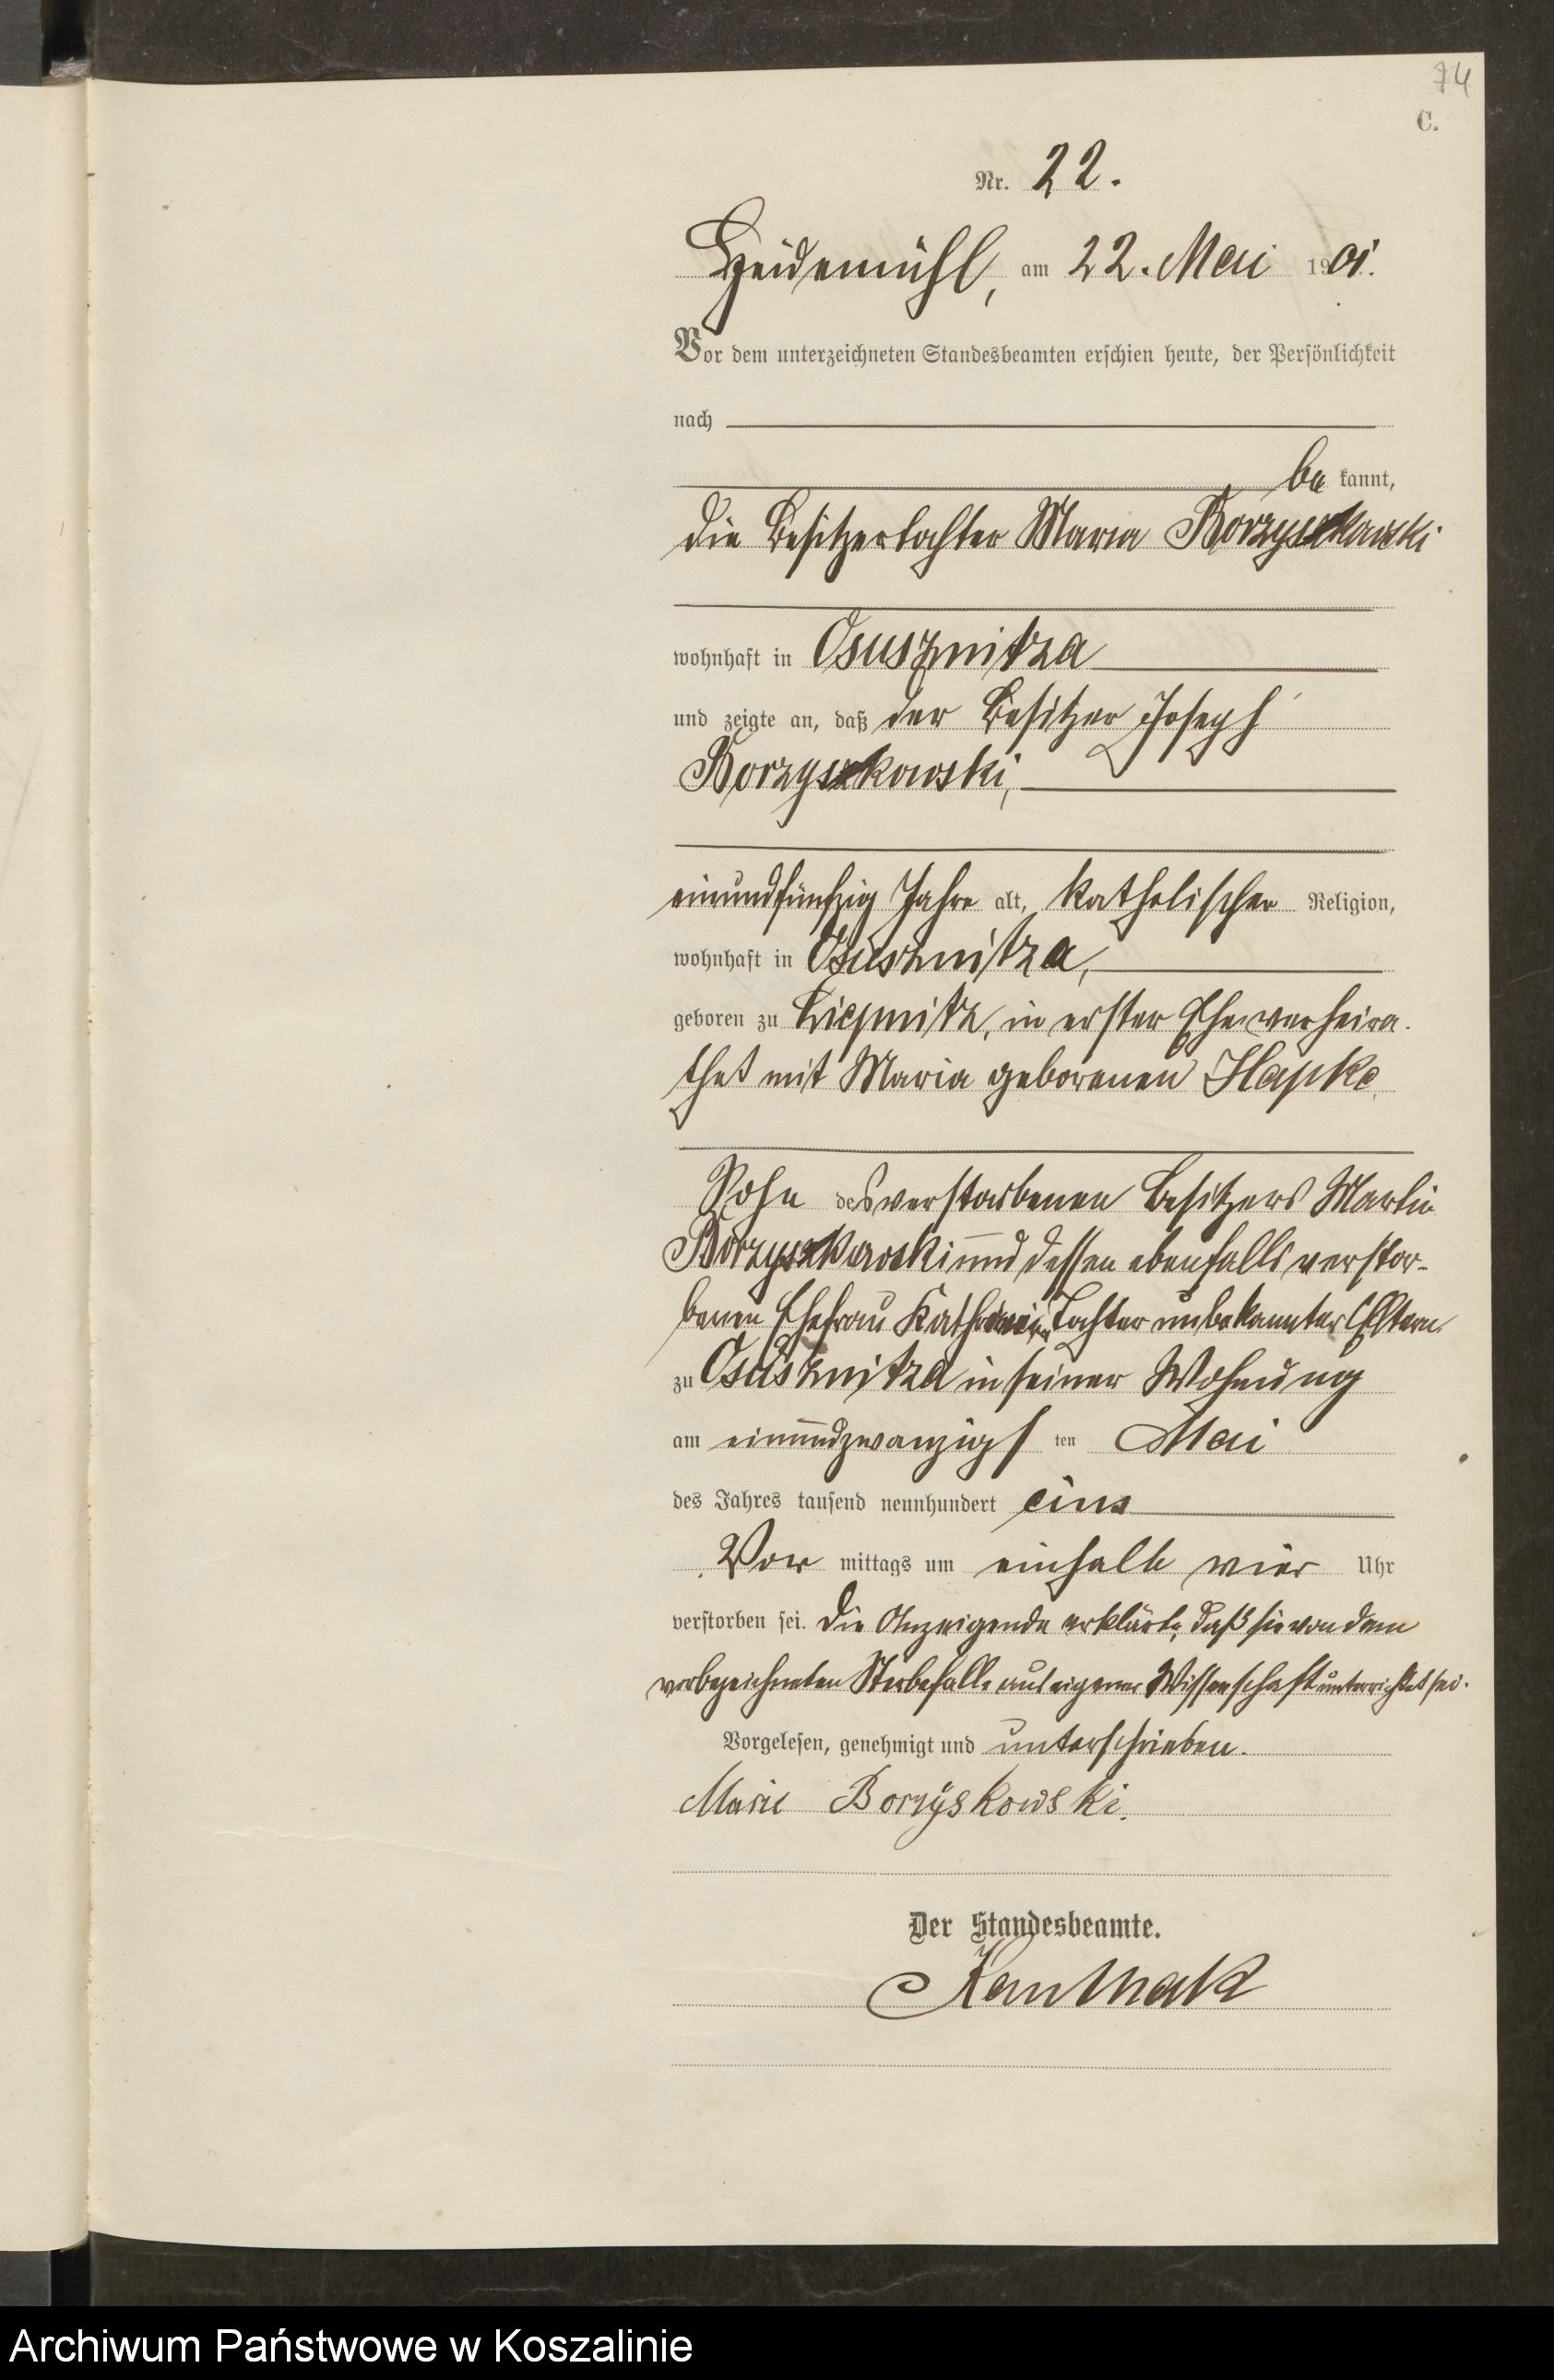 74
C.
Nr. 22.
Heidemühl, am 22. Mai 1901.
Vor dem unterzeichneten Standesbeamten erschien heute, der Persönlichkeit
nach
be kannt,
die Besitzertochter Maria Borzyszkowski
wohnhaft in Osusznitza
und zeigte an, daß der Besitzer Joseph
Borzyszkowski,
einundfünfzig Jahre alt, katholischer Religion,
wohnhaft in Osusznitza,
geboren zu Liepnitz, in erster Ehe verheira-
thet mit Maria geborenen Hapke
Sohn des verstorbenen Besitzers Martin
Borzyszkowski und dessen ebenfalls verstor-
benen Ehefrau Tochter unbekannter Eltern
zu Osusznitza in seiner Wohnung
am einundzwanzigsten Mai
des Jahres tausend neunhundert eins
Vor mittags um einhalb vier Uhr
verstorben sei. Die Anzeigende erklärte, daß sie von dem
vorbezeichneten Sterbefalle aus eigener Wissenschaft unterrichtet sei.
Vorgelesen, genehmigt und unterschrieben.
Marie Borzyskowski.
Der Standesbeamte.
Archiwum Państwowe w Koszalinie